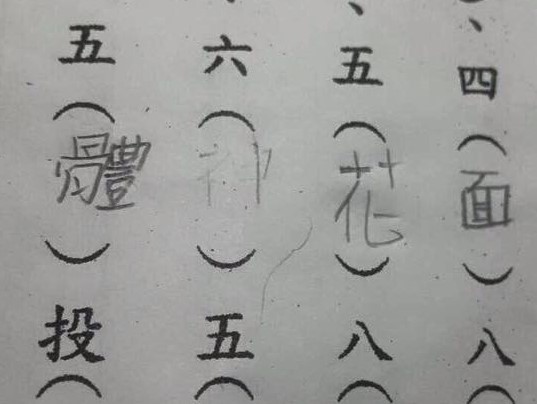 、四（面）八（
、五（花）八（
六（神）五（
五（體）投（